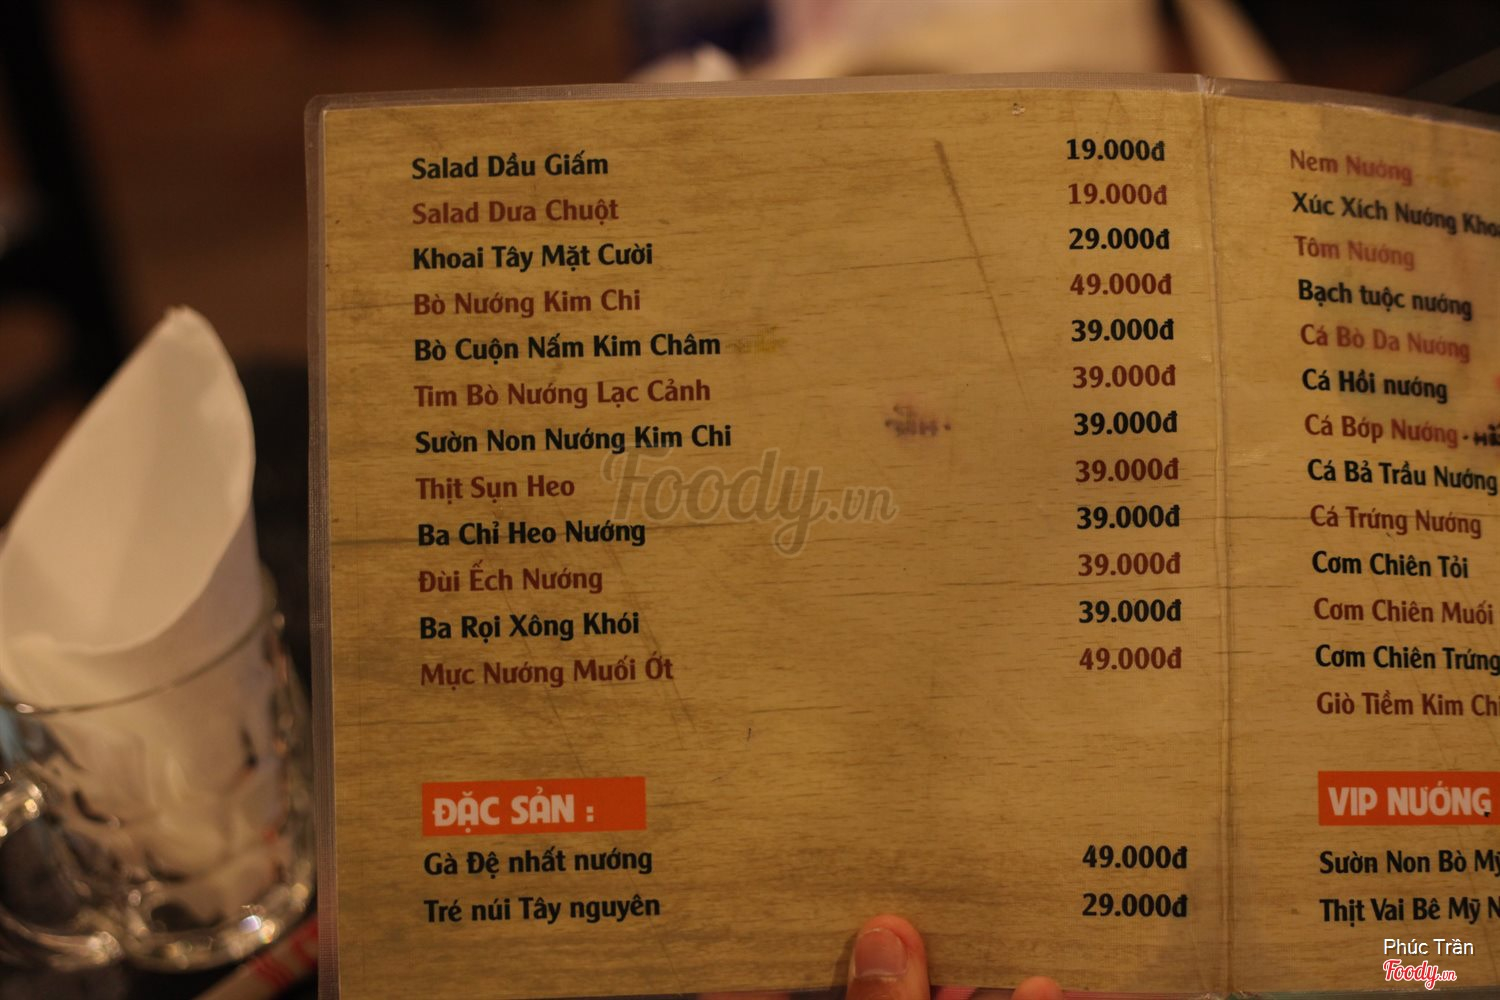 Salad Dầu Giấm 19.000đ
Salad Dưa Chuột 19.000đ
Khoai Tây Mặt Cười 29.000đ
Bò Nướng Kim Chi 49.000đ
Bò Cuộn Nấm Kim Châm 39.000đ
Tim Bò Nướng Lạc Cảnh 39.000đ
Sườn Non Nướng Kim Chi 39.000đ
Thịt Sụn Heo 39.000đ
Ba Chỉ Heo Nướng 39.000đ
Đùi Ếch Nướng 39.000đ
Ba Rọi Xông Khói 39.000đ
Mực Nướng Muối Ớt 49.000đ
ĐẶC SẢN :
Gà Đệ nhất nướng 49.000đ
Tré núi Tây nguyên 29.000đ
Nem Nướng
Xúc Xích Nướng
Tôm Nướng
Bạch tuộc nướng
Cá Bò Da Nướng
Cá Hồi nướng
Cá Bớp Nướng
Cá Bả Trầu Nướng
Cá Trứng Nướng
Cơm Chiên Tỏi
Cơm Chiên Muối
Cơm Chiên Trứng
Giò Tiềm Kim Chi
VIP NƯỚNG
Sườn Non Bò Mỹ
Thịt Vai Bê Mỹ
Foody.vn
Phúc Trần
Foody.vn